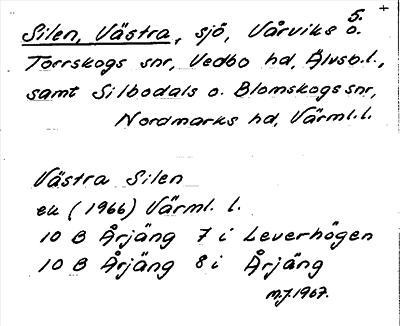 5. +
Silen, Västra, sjö, Vårviks o.
Torrskogs snr, Vedbo hd, Älvsb.l.,
samt Silbodals o. Blomskogs snr,
Nordmarks hd, Värml.l.
Västra Silen
ek (1966) Värml. l.
10 B Årjäng 7 i Leverhögen
10 B Årjäng 8 i Årjäng
M.J. 1967.